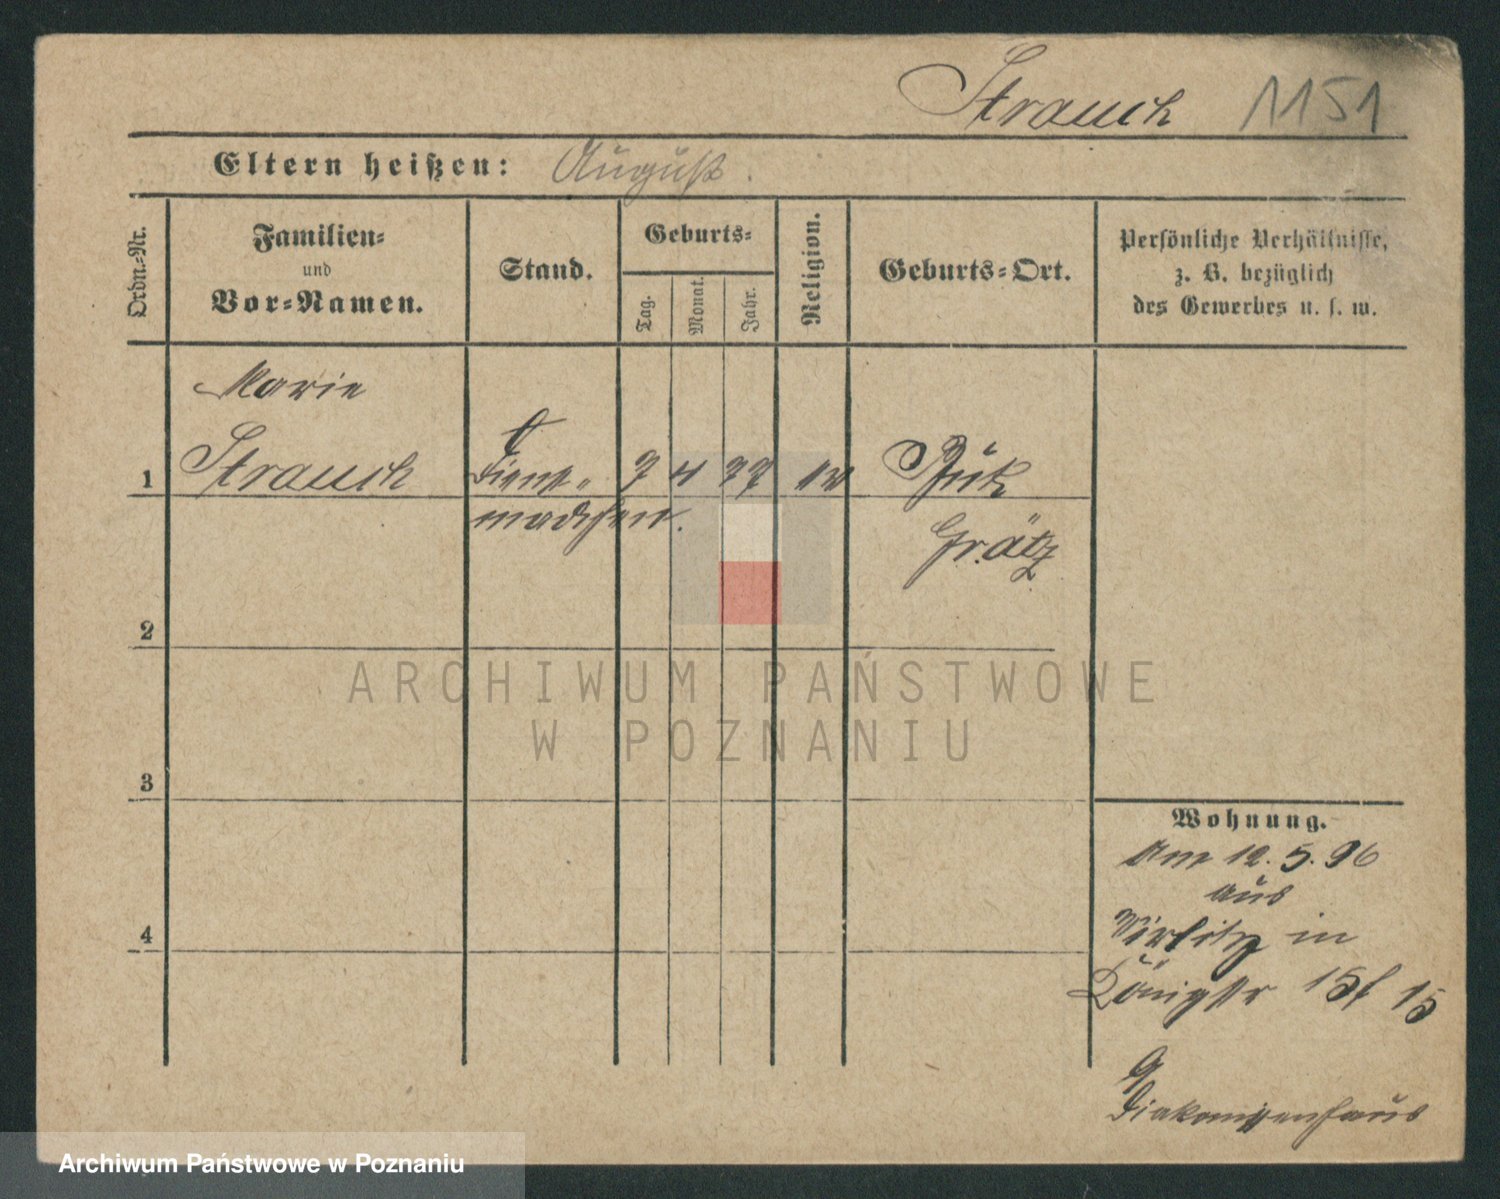 Strauch 1151
Eltern heißen: August.
Ordn.-Nr.
Familien-
und
Vor-Namen.
Stand.
Geburts-
Tag.
Monat.
Jahr.
Religion.
Geburts-Ort.
Persönliche Verhältnisse,
z. B. bezüglich
des Gewerbes u. s. w.
Marie
1 Strauch Dienst- 7 4 77
mädchen.
Grätz
2
3
4
Wohnung.
Am 12. 5. 96
aus
in
Königstr 15
Diakonissenhaus
ARCHIWUM PAŃSTWOWE
W POZNANIU
Archiwum Państwowe w Poznaniu